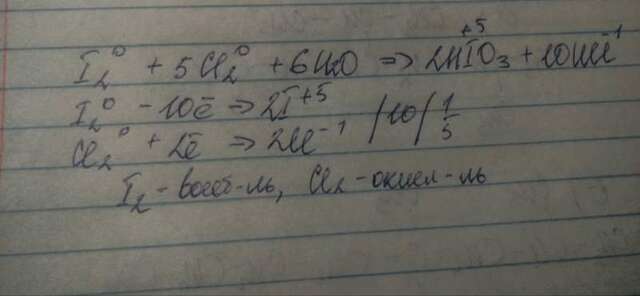 I₂⁰ + 5Cl₂⁰ + 6H₂O ⇒ 2HI⁺⁵O₃ + 10HCl⁻¹
I₂⁰ - 10ē ⇒ 2I⁺⁵
Cl₂⁰ + 2ē ⇒ 2Cl⁻¹ /10/ 1/5
I₂ - восст-ль, Cl₂ - окисл-ль